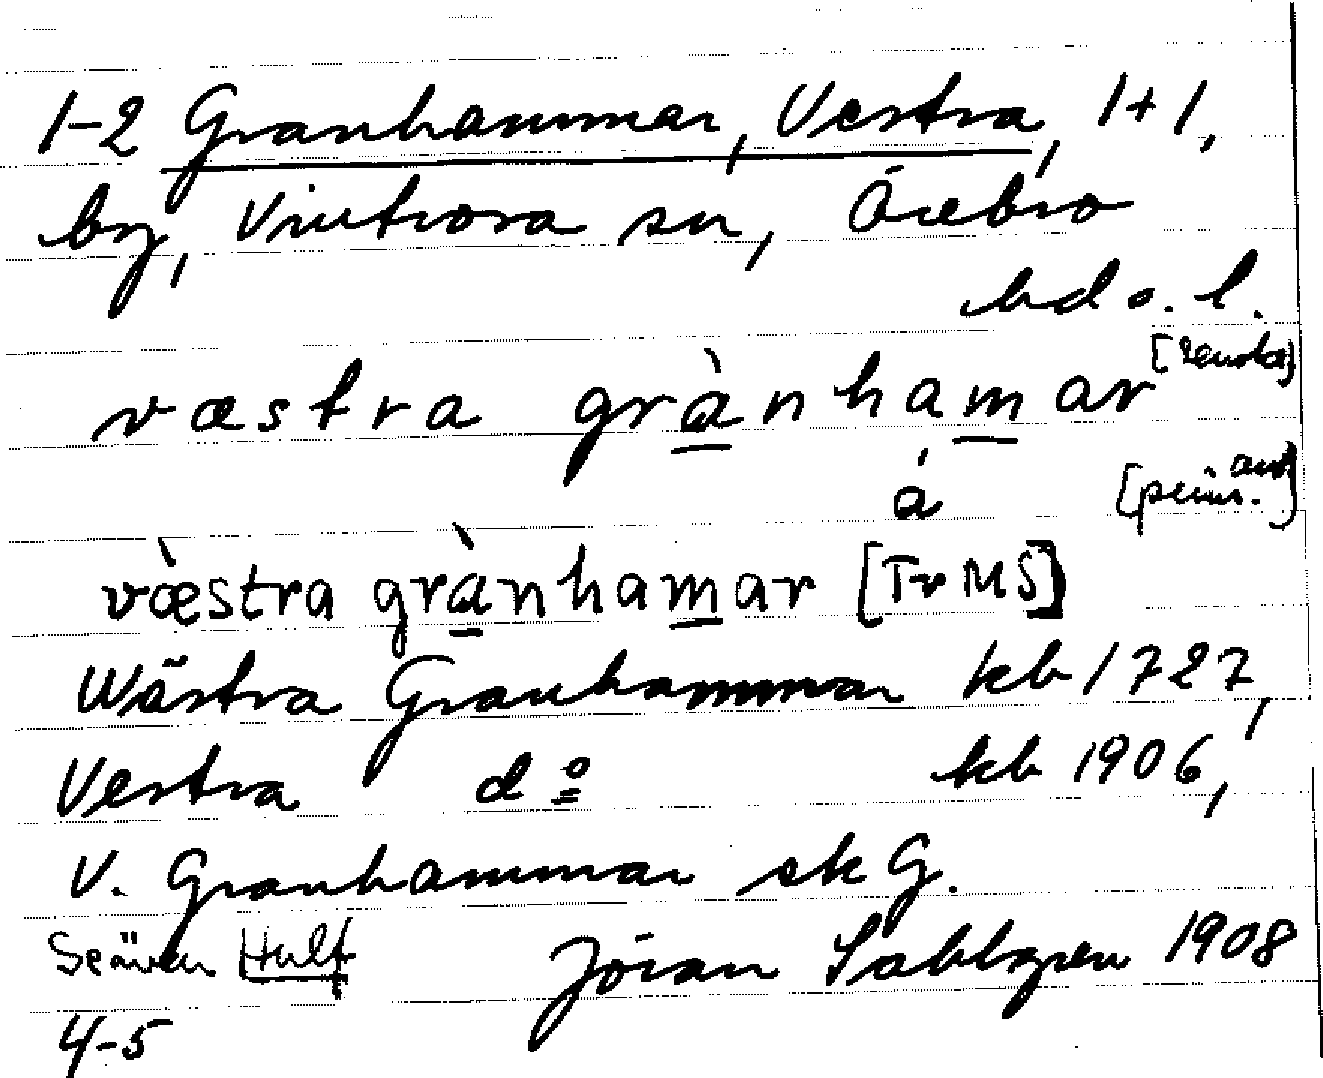 1-2 Granhammar, Vestra, 1+1,
by, Vintrosa sn, Örebro
hd o. l.
væstra grànhamar
á
[prim. ant]
væ̀stra grànhamar [Tr MS]
Wästra Granhammar kb 1727,
Vestra dº kb 1906,
V. Granhammar sk G.
Se även Hult Jöran Sahlgren 1908
4-5